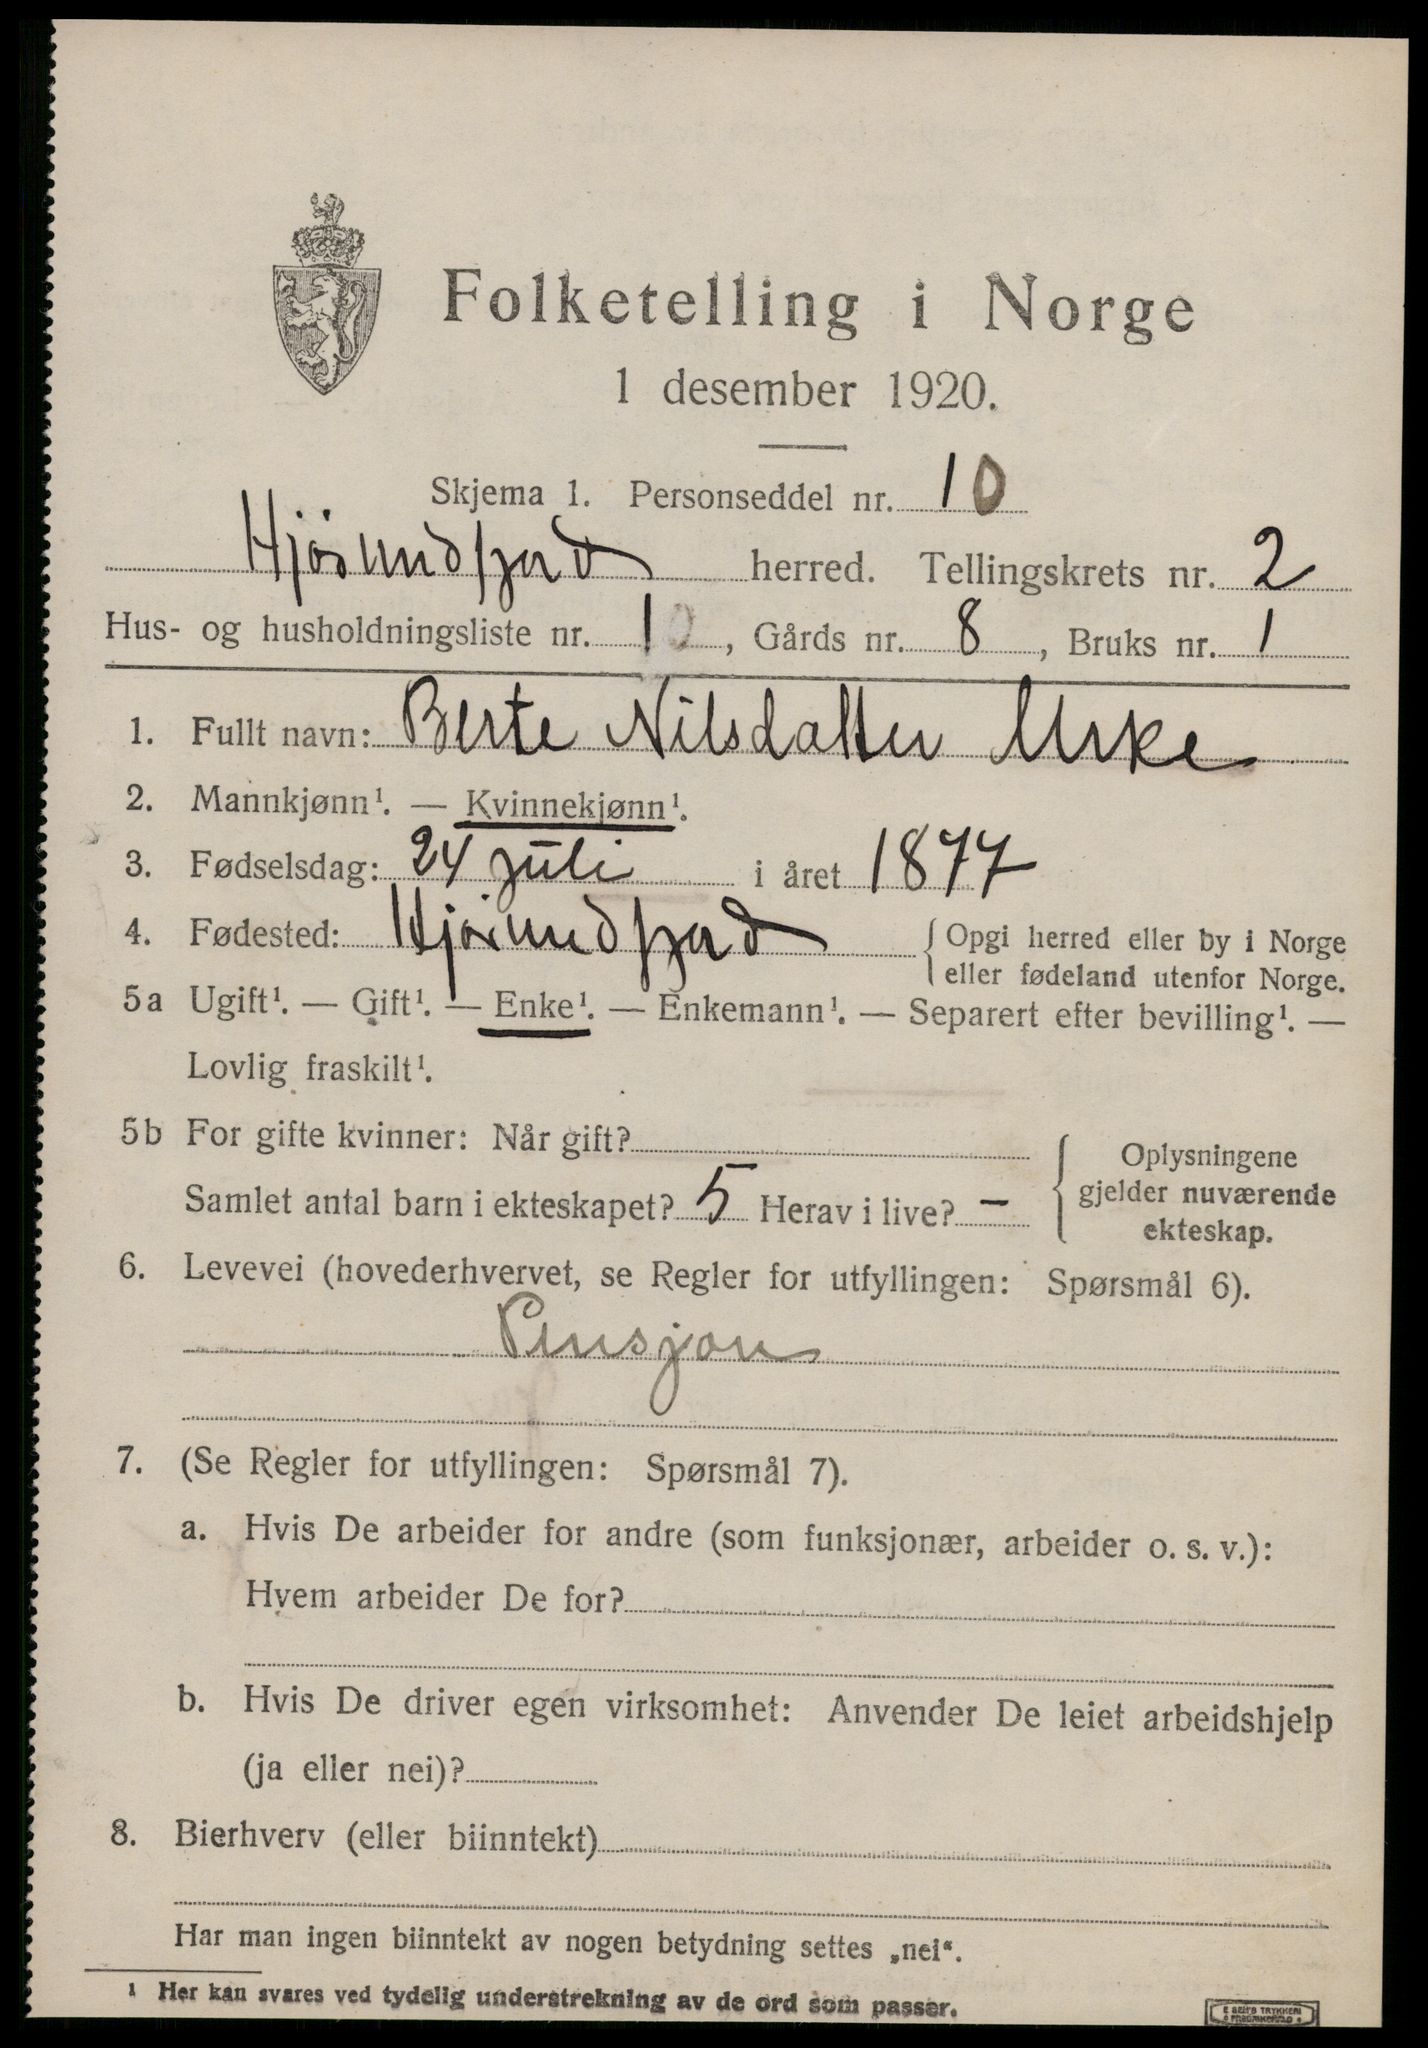 Folketelling i Norge
1 desember 1920.
Skjema 1. Personseddel nr. 10
Hjørundfjord herred. Tellingskrets nr. 2
Hus- og husholdningsliste nr. 10, Gårds nr. 8, Bruks nr. 1
1. Fullt navn: Berte Nilsdatter Urke
2. Mannkjønn¹. — Kvinnekjønn¹.
3. Fødselsdag: 24 juli i året 1877
4. Fødested: Hjørundfjord { Opgi herred eller by i Norge
eller fødeland utenfor Norge.
5a Ugift¹. — Gift¹. — Enke¹. — Enkemann¹. — Separert efter bevilling¹. —
Lovlig fraskilt¹.
5b For gifte kvinner: Når gift?
Samlet antal barn i ekteskapet? 5 Herav i live? –
{ Oplysningene
gjelder nuværende
ekteskap.
6. Levevei (hovederhvervet, se Regler for utfyllingen: Spørsmål 6).
Pensjon
7. (Se Regler for utfyllingen: Spørsmål 7).
a. Hvis De arbeider for andre (som funksjonær, arbeider o. s. v.):
Hvem arbeider De for?
b. Hvis De driver egen virksomhet: Anvender De leiet arbeidshjelp
(ja eller nei)?
8. Bierhverv (eller biinntekt)
Har man ingen biinntekt av nogen betydning settes „nei“.
¹ Her kan svares ved tydelig understrekning av de ord som passer.